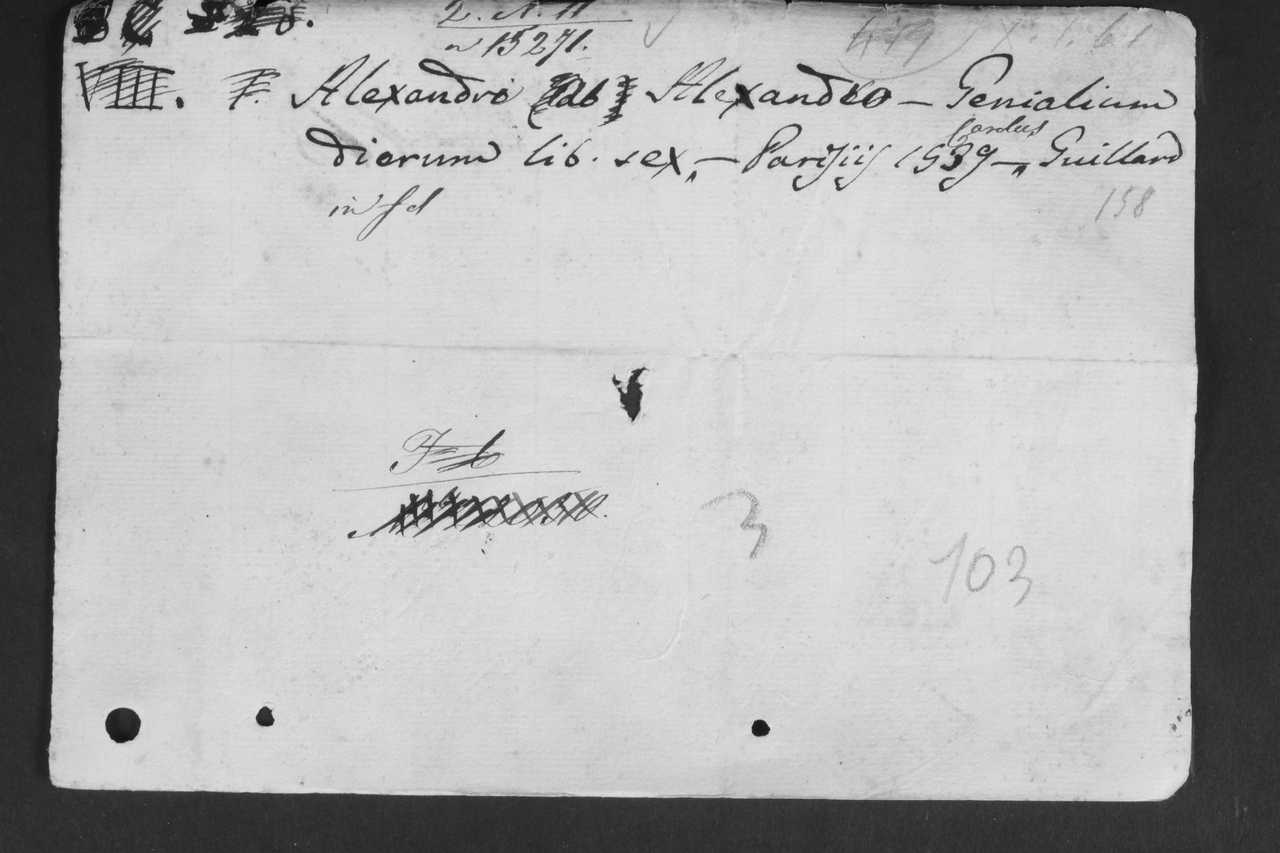 2. N. 11
15271.
419 X. 1. 61
VIII. F. Alexandro (ab) Alexandro — Genialium
dierum lib. sex, — Parisiis 1539 — Guillard
in fol
158
3
103